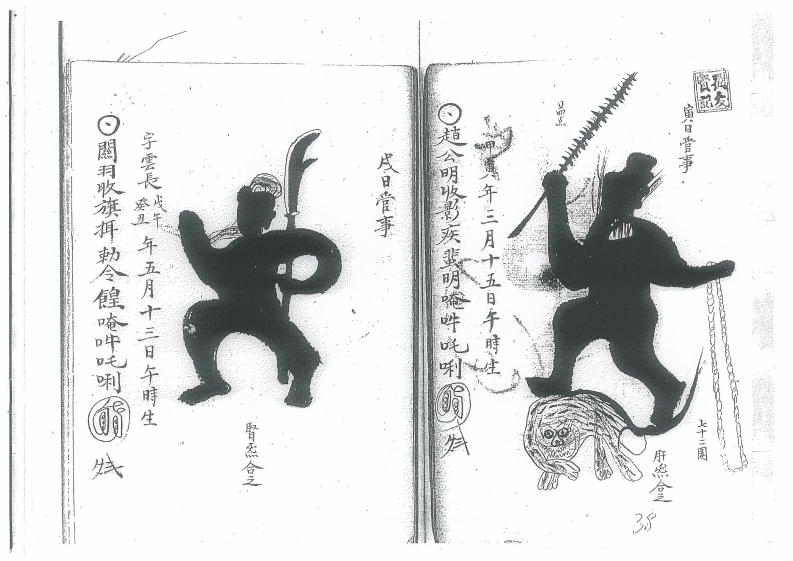 寅日管事
甲寅年三月十五日午時生
趙公明收影疾
明唵吽吒唎
七十二
肝炁合之
38
戌日管事
字雲長
戊午
癸丑
年五月十三日午時生
關羽收旗
勅令
唵吽吒唎
腎炁合之